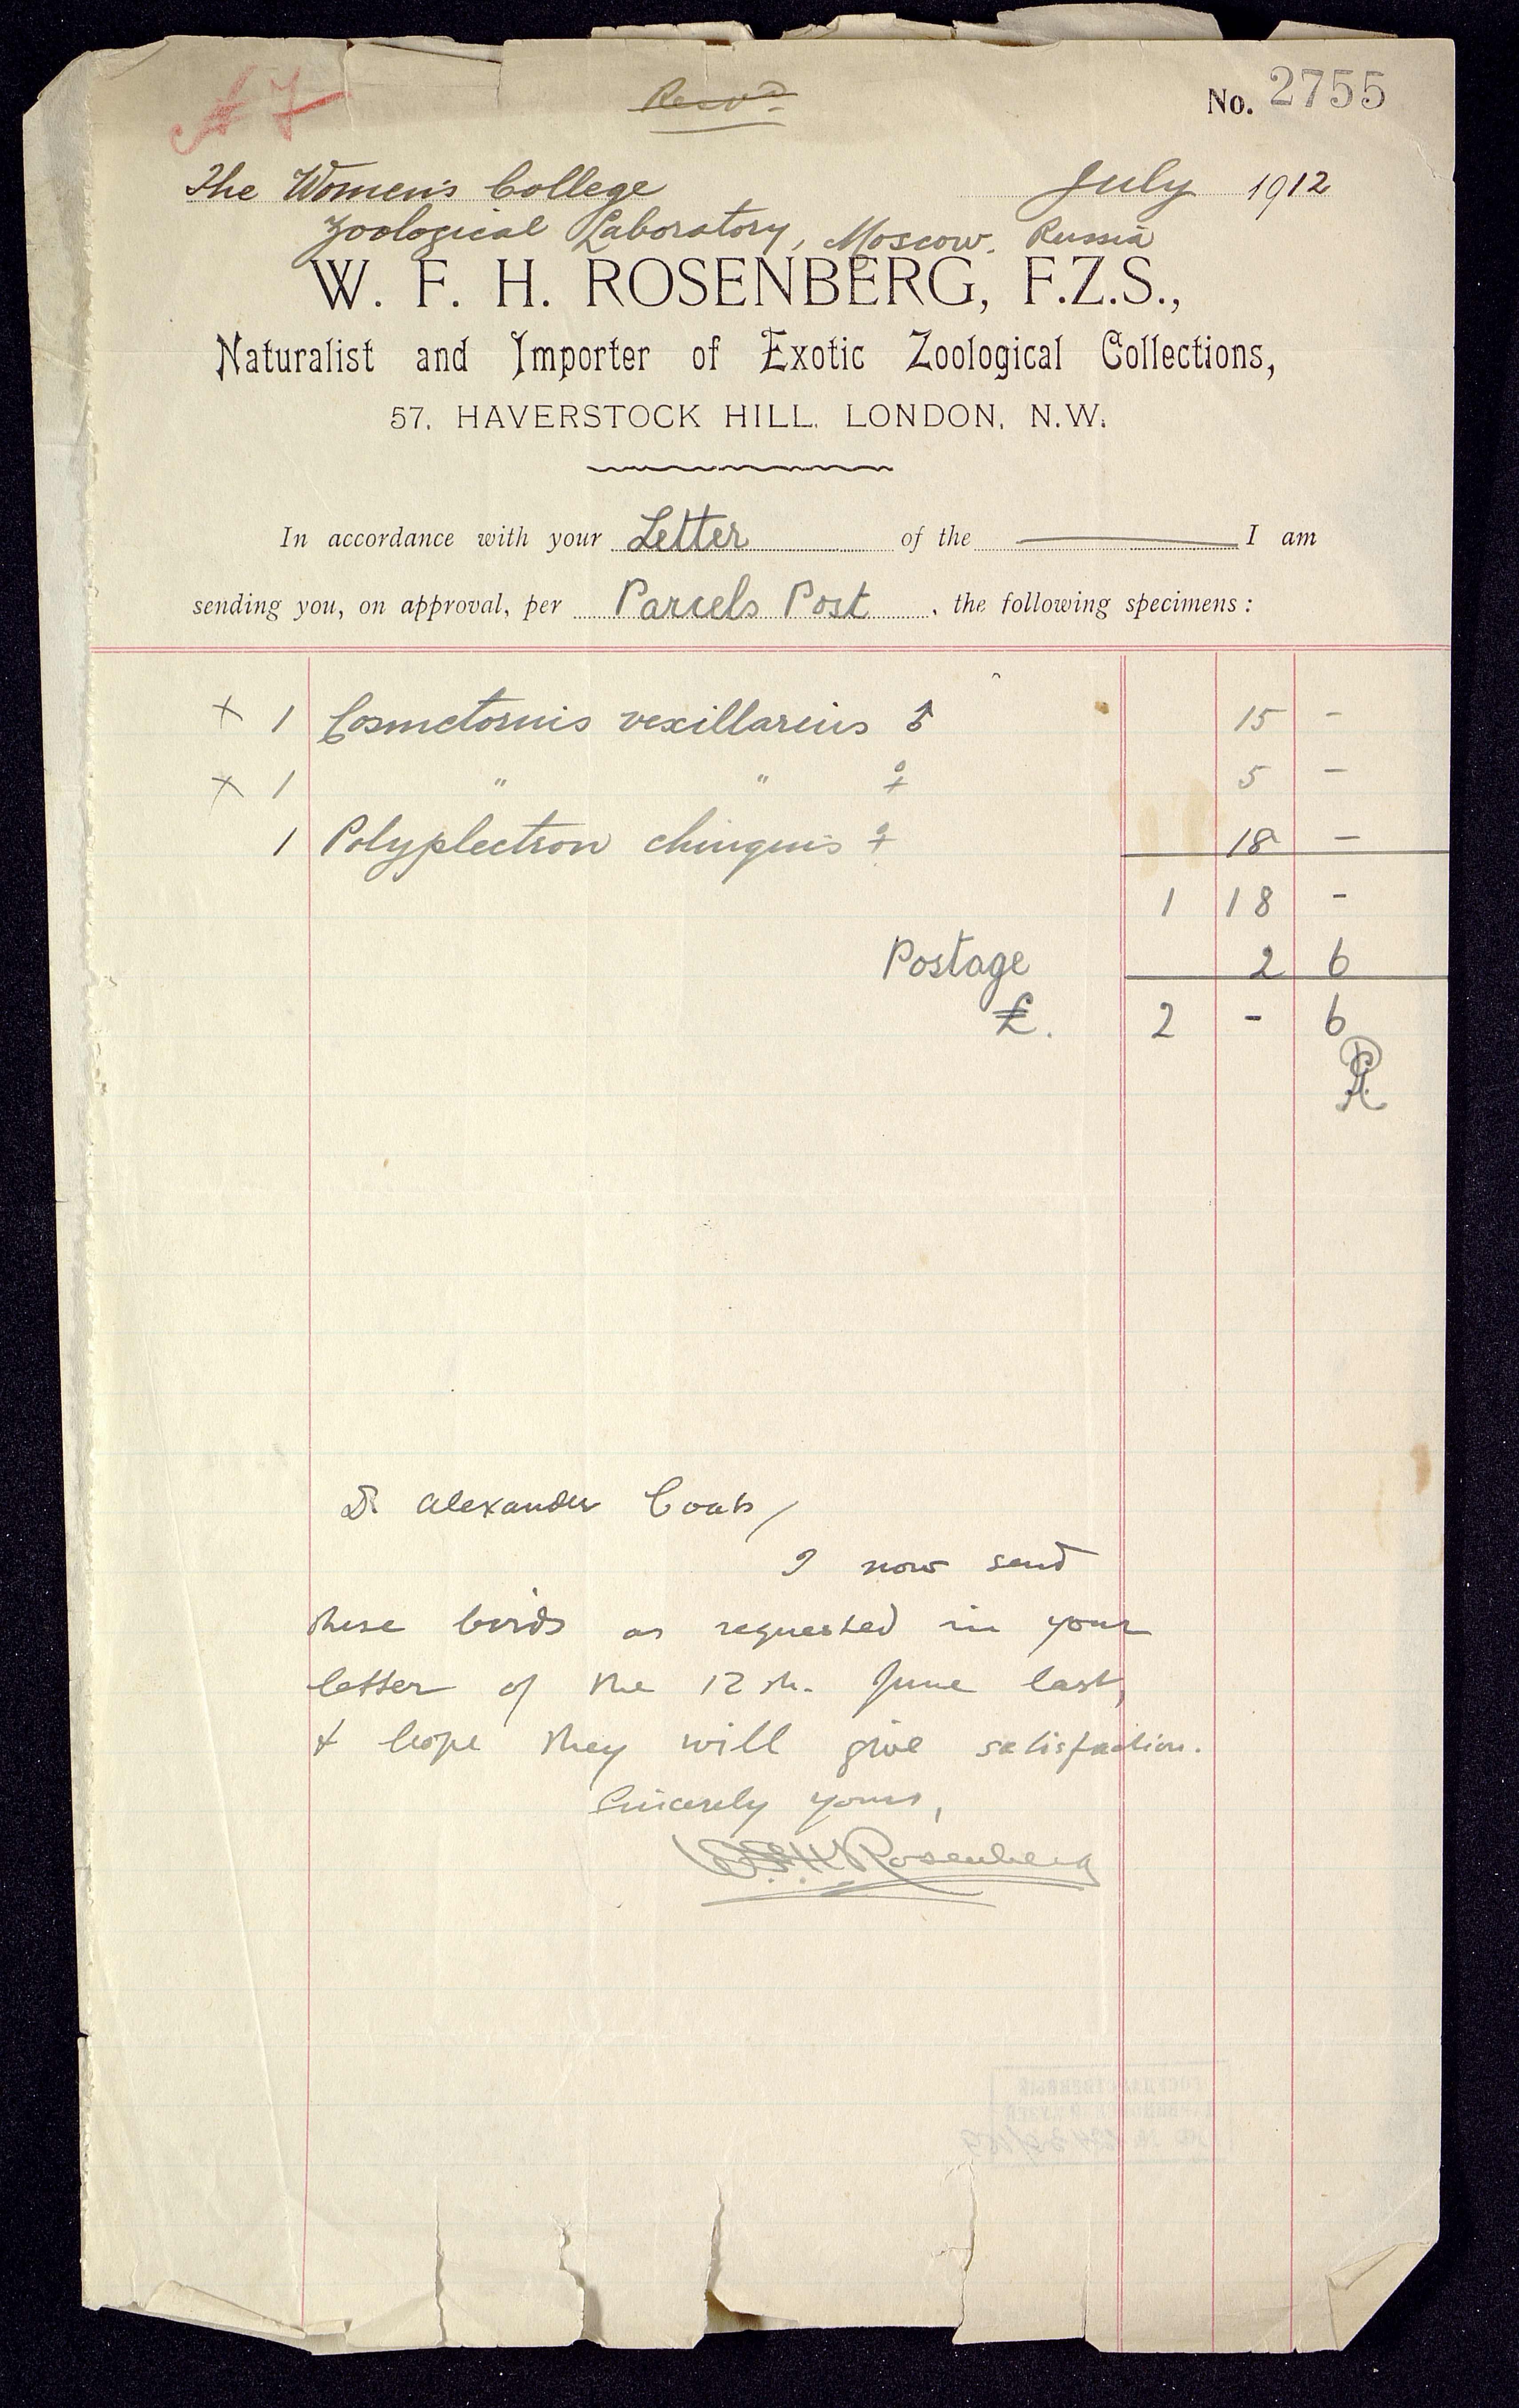 A 7
Recvd
No. 2755
The Women's College
July 1912
Zoological Laboratory, Moscow. Russia
W. F. H. ROSENBERG, F.Z.S.,
Naturalist and Importer of Exotic Zoological Collections,
57, HAVERSTOCK HILL, LONDON, N.W.
In accordance with your Letter of the I am
sending you, on approval, per Parcels Post, the following specimens:
× 1 Cosmetornis vexillarius ♂ 15 -
× 1 " " ♀ 5 -
1 Polyplectron chinquis ♀ 18 -
1 18 -
Postage 2 6
£. 2 - 6
Dr Alexander Coats,
I now send
these birds as requested in your
letter of the 12th. June last,
& hope they will give satisfaction.
Sincerely yours,
W.F.H. Rosenberg